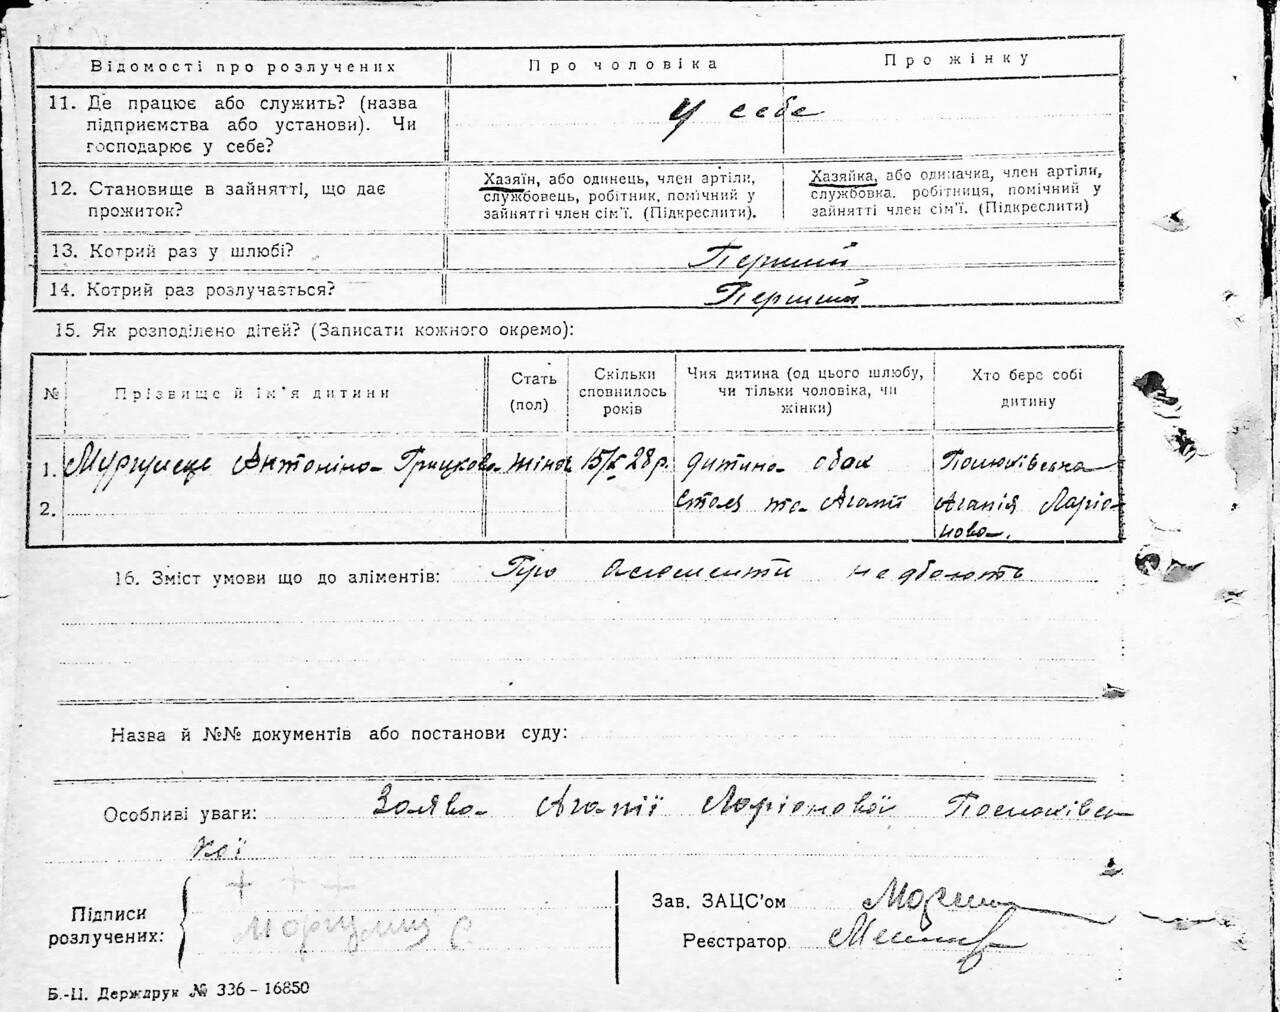 Відомості про розлучених Про чоловіка Про жінку
11. Де працює або служить? (назва
підприємства або установи). Чи
господарює у себе?
У себе
12. Становище в зайнятті, що дає
прожиток?
Хазяїн, або одинець, член артіли,
службовець, робітник, помічний у
зайнятті член сім'ї. (Підкреслити).
Хазяйка, або одиначка, член артіли,
службовка. робітниця, помічний у
зайнятті член сім'ї. (Підкреслити)
13. Котрий раз у шлюбі? Перший
14. Котрий раз розлучається? Перший
15. Як розподілено дітей? (Записати кожного окремо):
№
Прізвище й ім'я дитини
Стать
(пол)
Скільки
сповнилось
років
Чия дитина (од цього шлюбу,
чи тільки чоловіка, чи
жінки)
Хто бере собі
дитину
1. Антоніна жіноч 28 р. дитина обох
2. та Агапії Агапія Ларіо-
нова.
16. Зміст умови що до аліментів: Про алименти не дбають
Назва й №№ документів або постанови суду:
Особливі уваги: Заява Агапії Ларіонової
кої
Підписи
розлучених:
+ + +
Зав. ЗАЦС'ом
Реєстратор
Б.-Ц. Держдрук № 336 – 16850